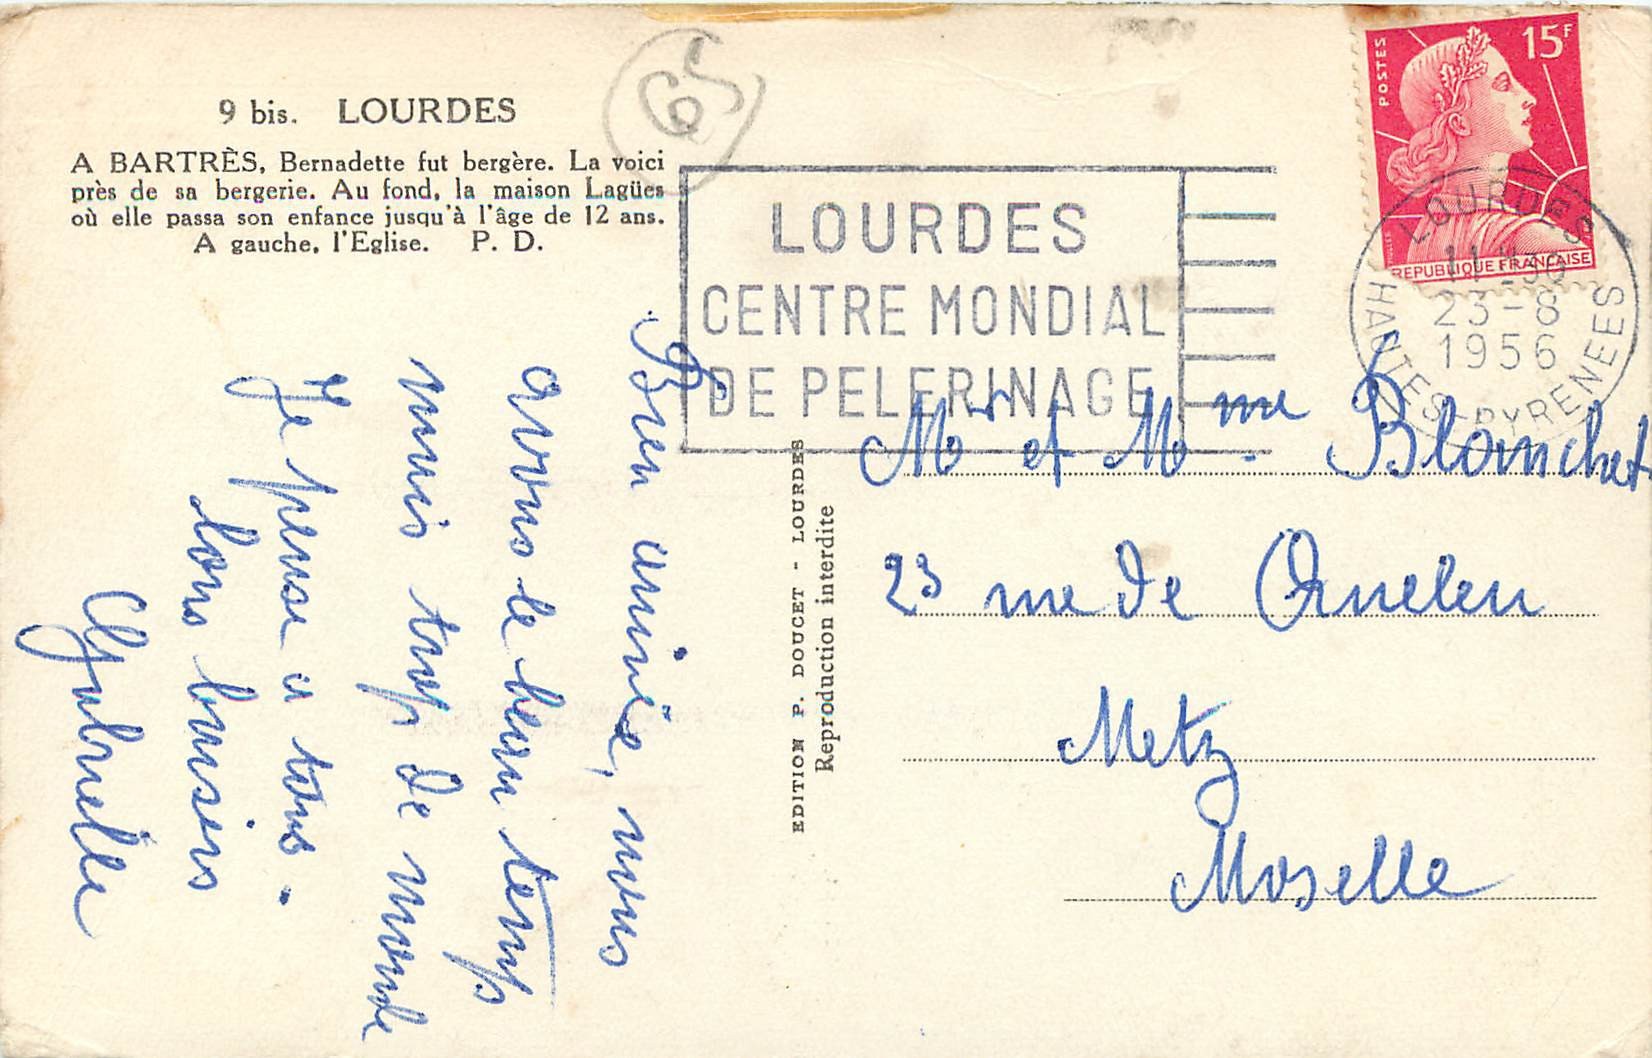 9 bis. LOURDES
A BARTRÈS, Bernadette fut bergère. La voici
près de sa bergerie. Au fond, la maison Lagües
où elle passa son enfance jusqu'à l'âge de 12 ans.
A gauche, l'Eglise. P. D.
65
LOURDES
CENTRE MONDIAL
DE PELERINAGE
POSTES
15F
REPUBLIQUE FRANÇAISE
LOURDES
11H30
23-8
1956
HAUTES-PYRENEES
Bien arrivée, nous
avons le beau temps
mais trop de monde
Je pense a tous.
bons baisers
Gabrielle
EDITION P. DOUCET - LOURDES
Reproduction interdite
Mr et Mme. Blanchet
23 rue de
Metz
Moselle